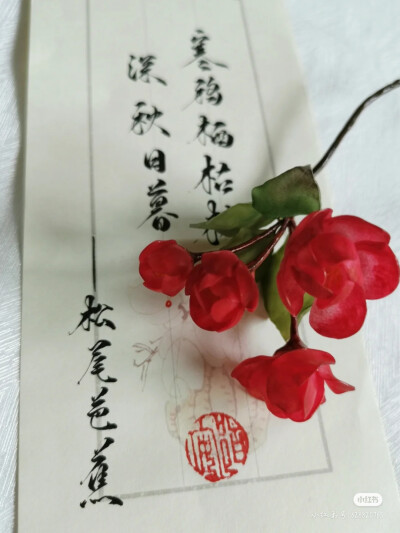 寒鸦栖枯
深秋日暮
松尾芭蕉
小红书